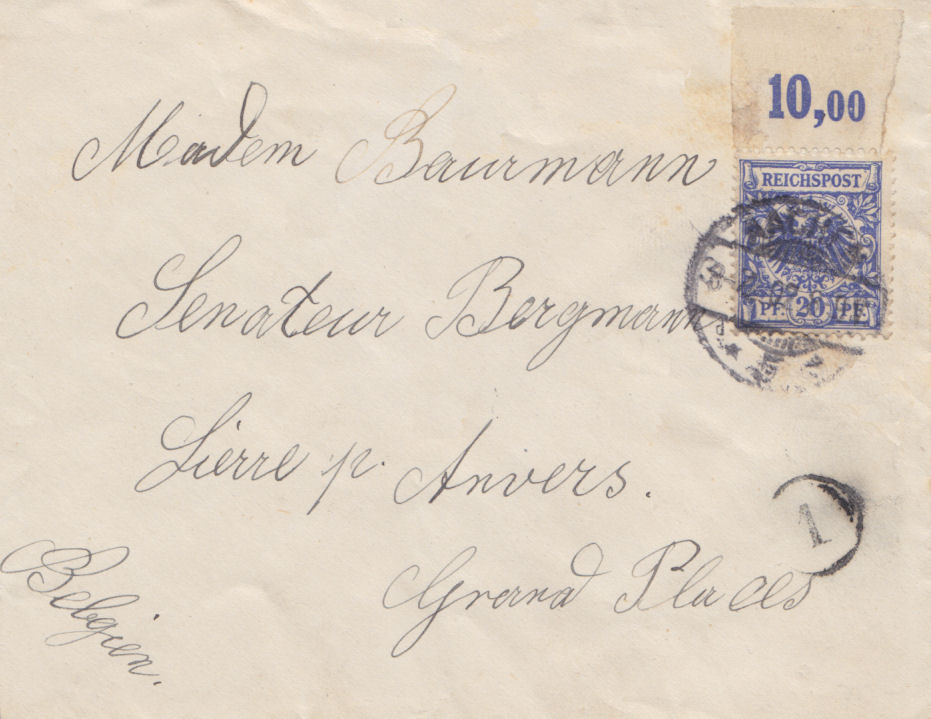 10,00
REICHSPOST
PF. 20 PF.
Madem Baurmann
Senateur Bergmann
Lierre p. Anvers.
1
Grand Places
Belgien.